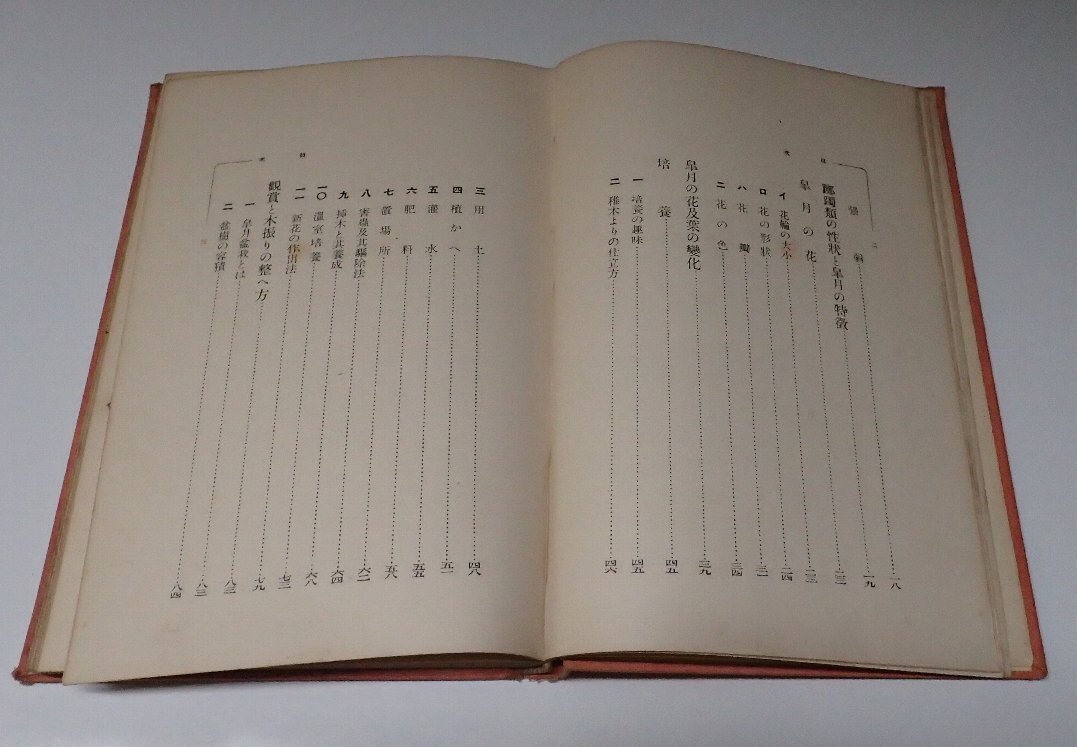 目次
二
一八
躑躅類の性狀と皐月の特徵 一九
皐月の花
イ 花輪の大小
ロ 花の形狀 二四
ハ 花瓣 三一
ニ 花の色 三四
皐月の花及葉の變化 三九
培養 四五
一 培養の趣味 四五
二 稚木よりの仕立方 四六
三 用土 四八
四 植かへ 五一
五 灌水 五五
六 肥料 五八
七 置場所 六二
八 害蟲及其驅除法 六四
九 挿木と其養成 六八
一〇 溫室培養 七三
一一 新花の作出法 七九
觀賞と木振りの整へ方
一 皐月盆栽とは 八三
二 盆樹の容積 八四
目次